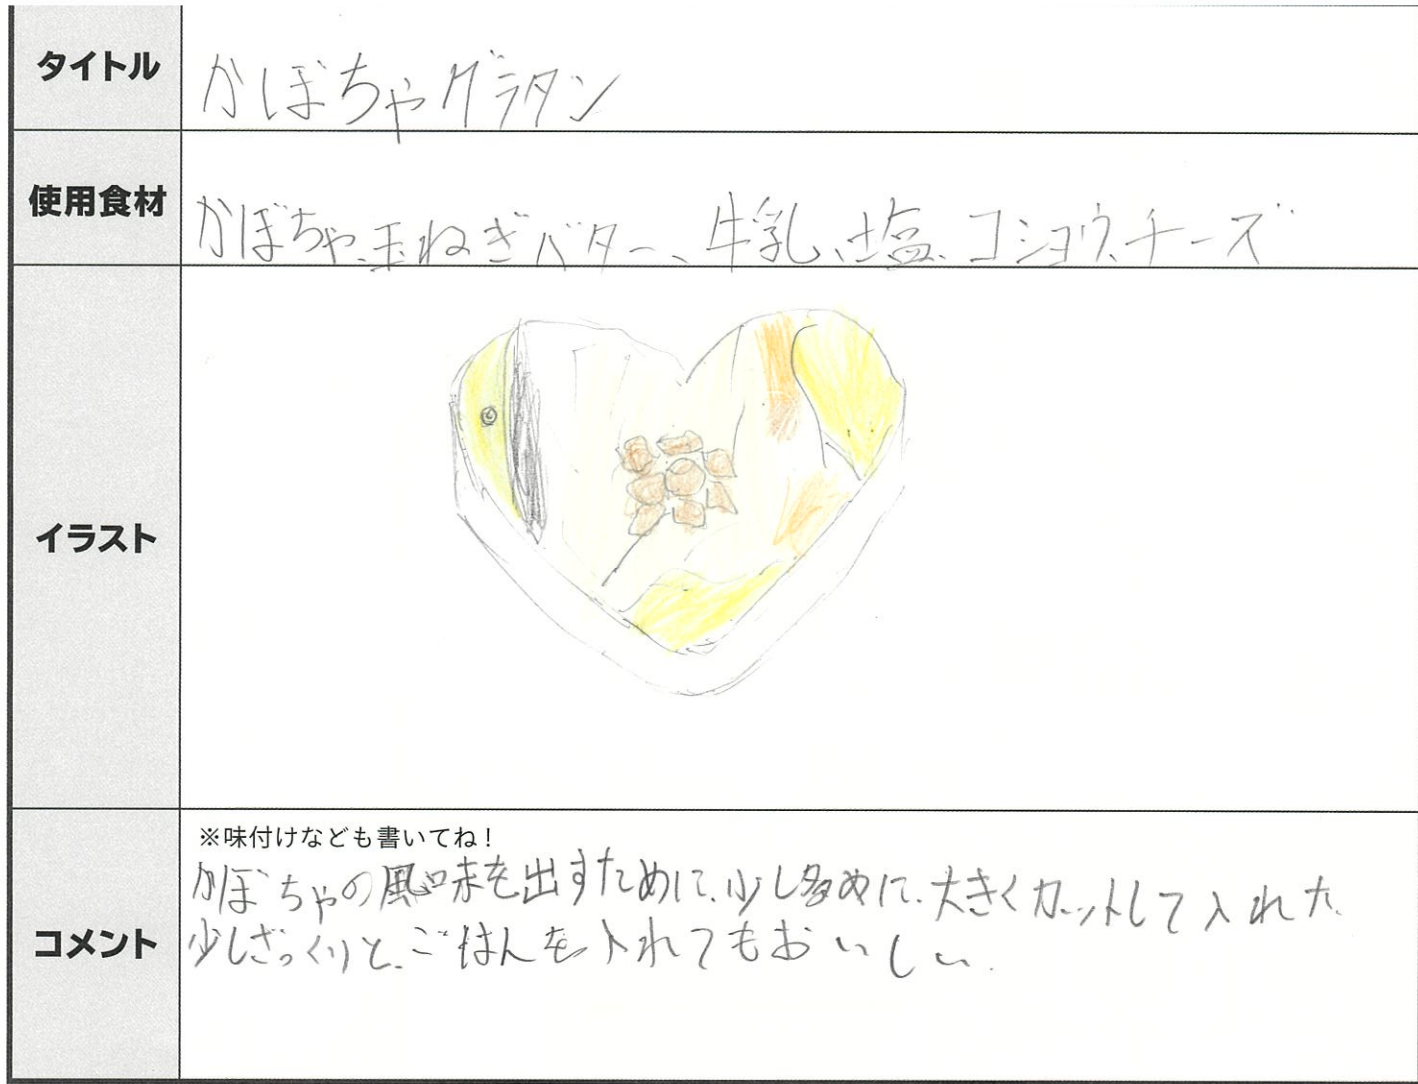 タイトル
かぼちゃグラタン
使用食材
かぼちゃ、玉ねぎバター、牛乳、塩、コショウ、チーズ
イラスト
コメント
※味付けなども書いてね!
かぼちゃの風味を出すために、少し多めに、大きくカットして入れた。
少しざっくりと、ごはんを入れてもおいしい。